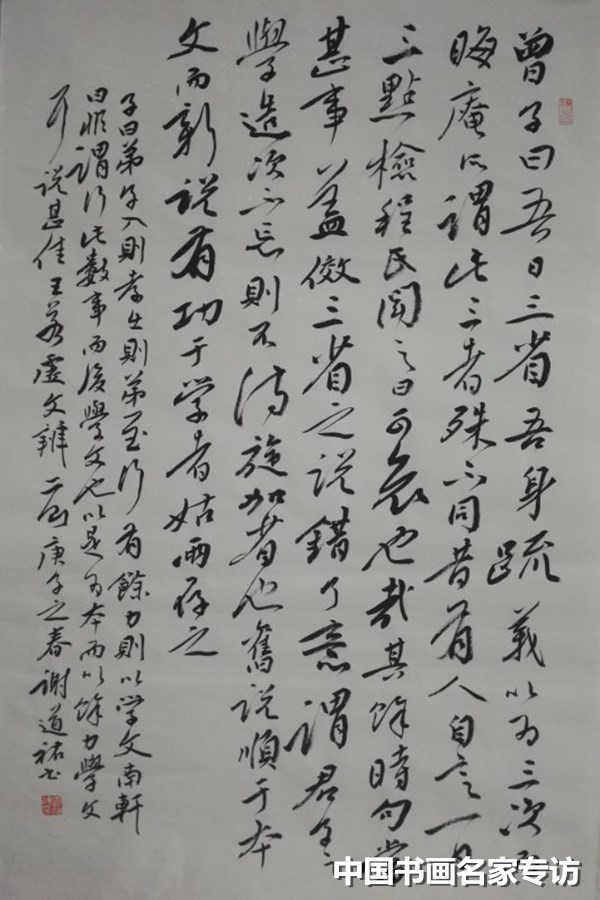 曾子曰吾日三省吾身疏義以为三次而
晦庵以謂此三者殊不同昔有人自言一日
三點檢程氏聞之曰可哀也哉其餘時勾當
甚事蓋傚三省之说錯了意謂君子
學造次不忘則不待施加者也舊说順于本
文而新说有功于学者姑兩存之
子曰弟子入則孝出則弟至行有餘力則以学文南軒
曰非謂行此数事而後學文也以是为本而以餘力學文
耳说甚佳王若虛文辨二則庚子之春谢道祐书
中国书画名家专访